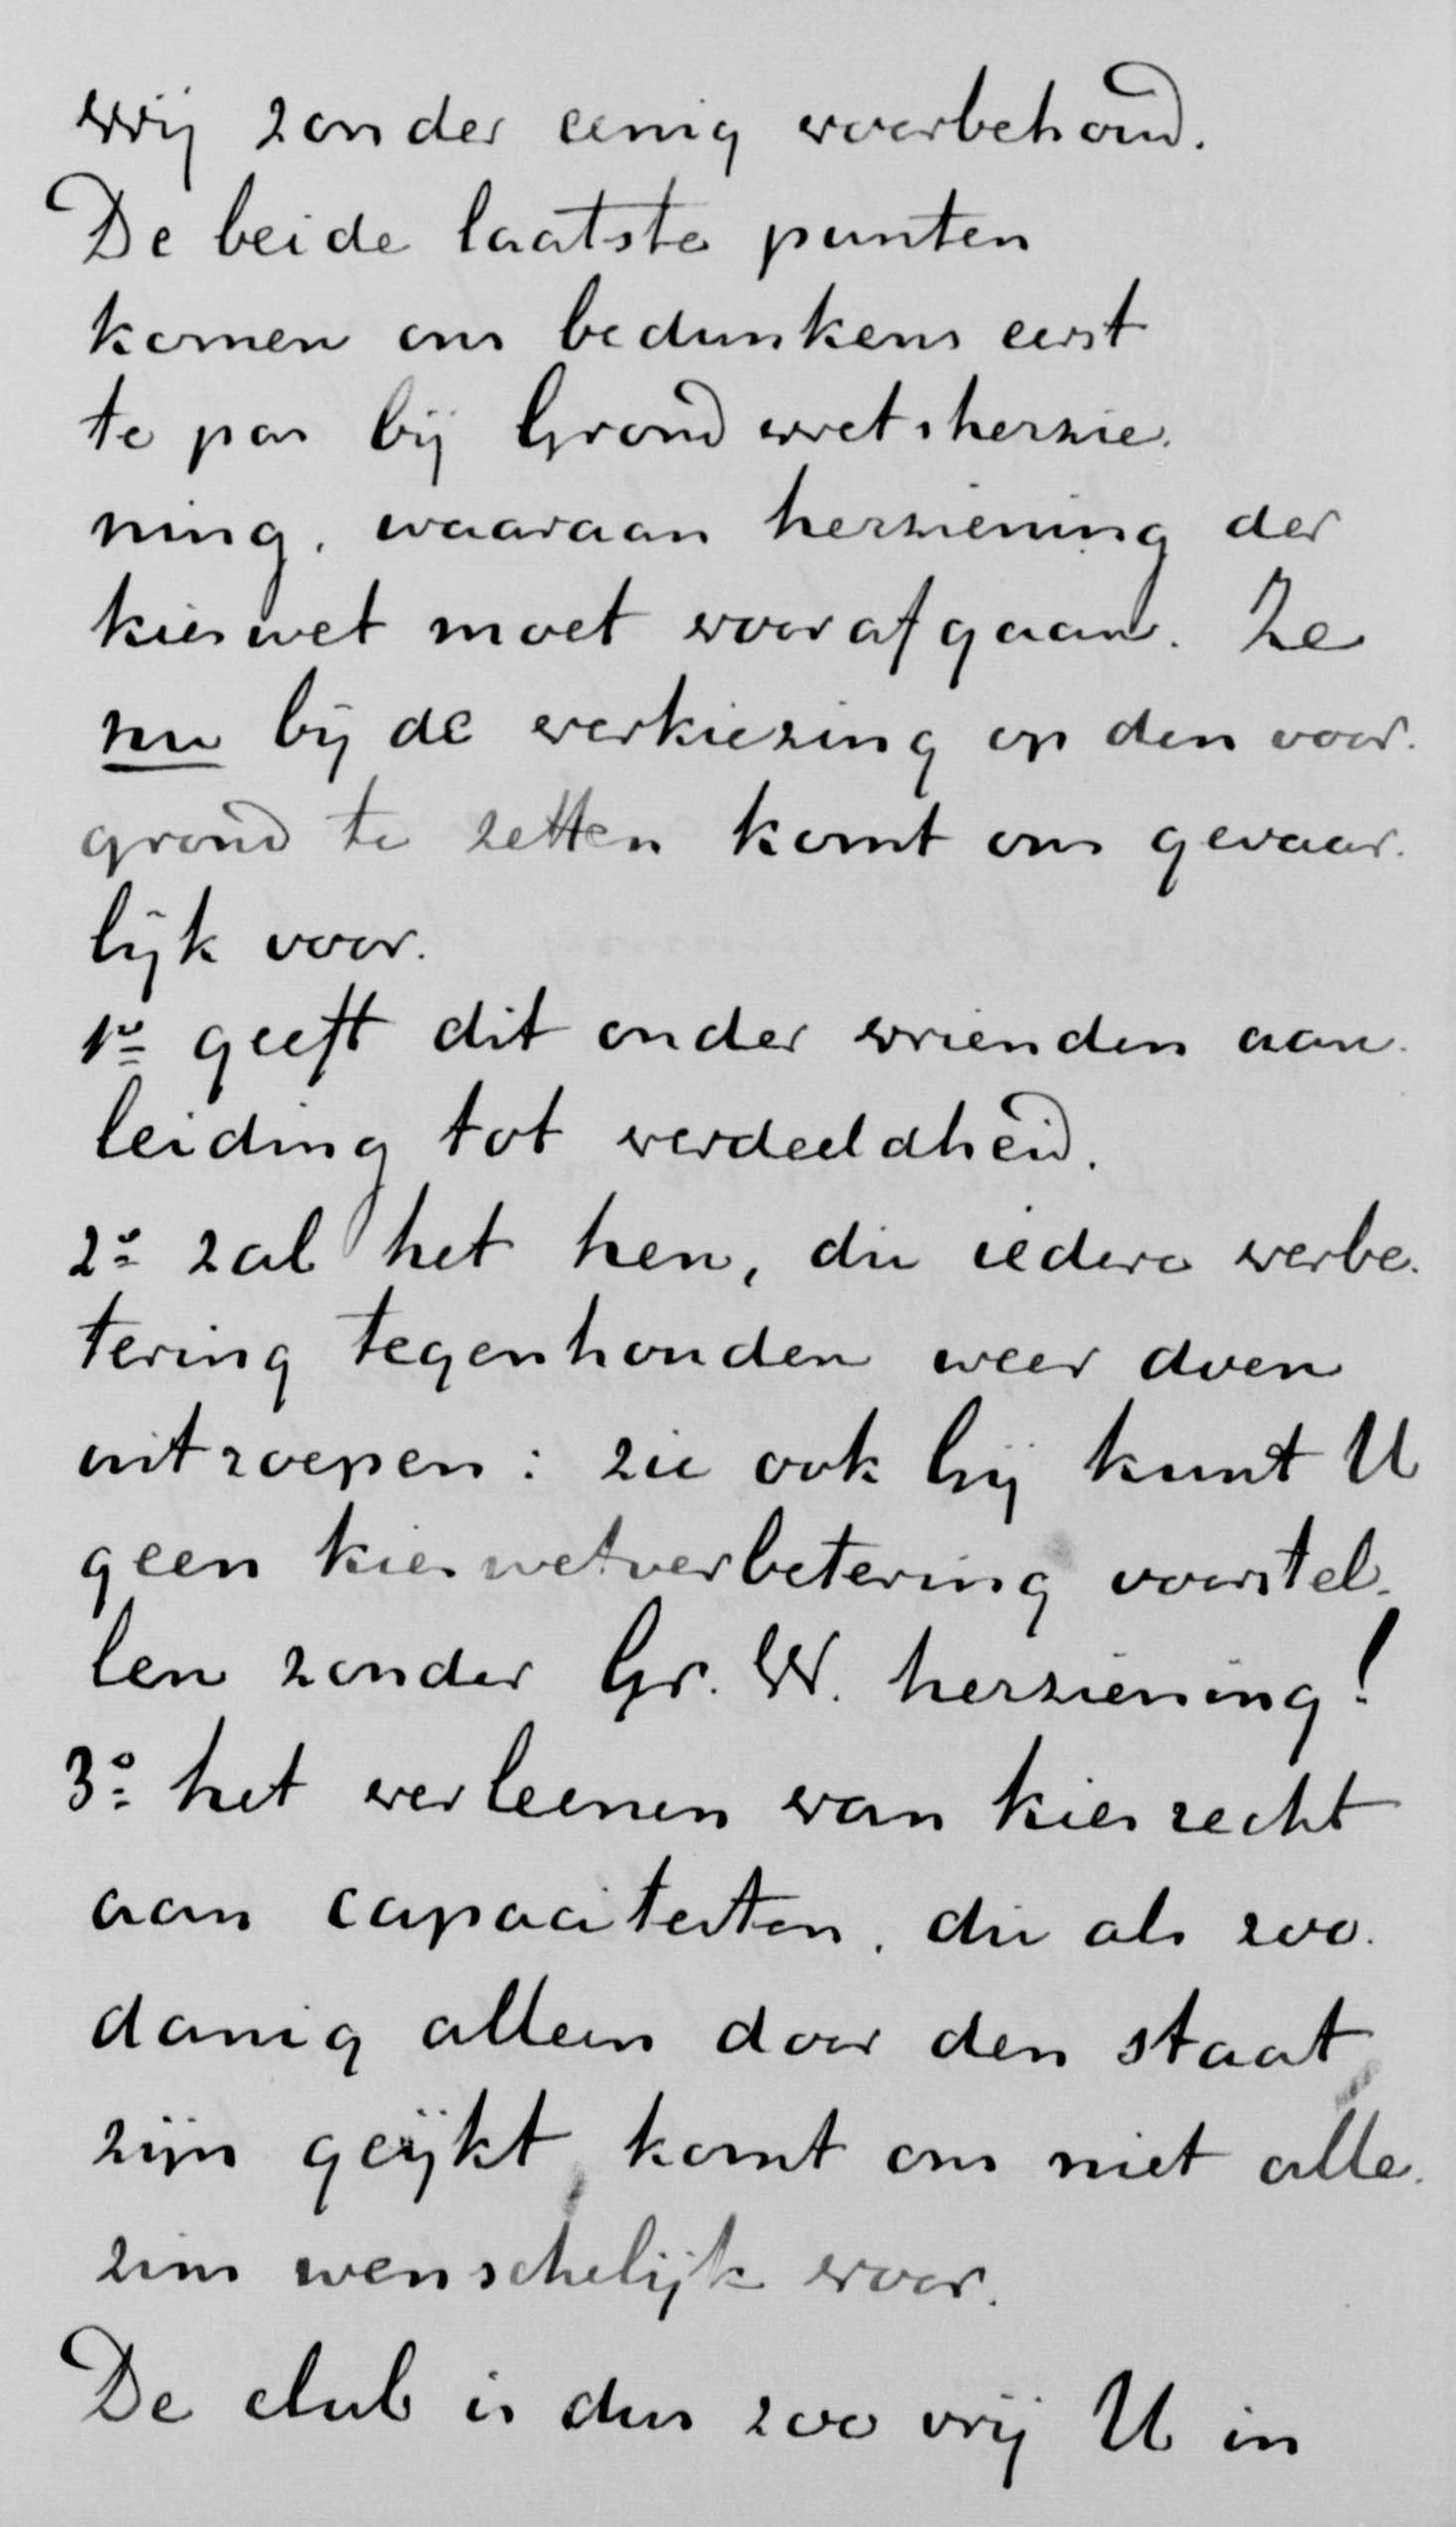 wij zonder eenig voorbehoud.
De beide laatste punten
komen ons bedunkens eerst
te pas bij Grondwetsherzie-
ning, waaraan herziening der
kieswet moet voorafgaan. Ze
nu bij de verkiezing op den voor-
grond te zetten komt ons gevaar-
lijk voor.
1o geeft dit onder vrienden aan-
leiding tot verdeeldheid.
2o zal het hen, die iedere verbe-
tering tegenhouden weer doen
uitroepen: zie ook hij kunt U
geen kieswetverbetering voorstel-
len zonder Gr. W. herziening!
3o het verleenen van kiesrecht
aan capaciteiten, die als zoo-
danig alleen door den staat
zijn geijkt, komt ons niet alle-
zins wenschelijk voor.
De club is dus zoo vrij U in